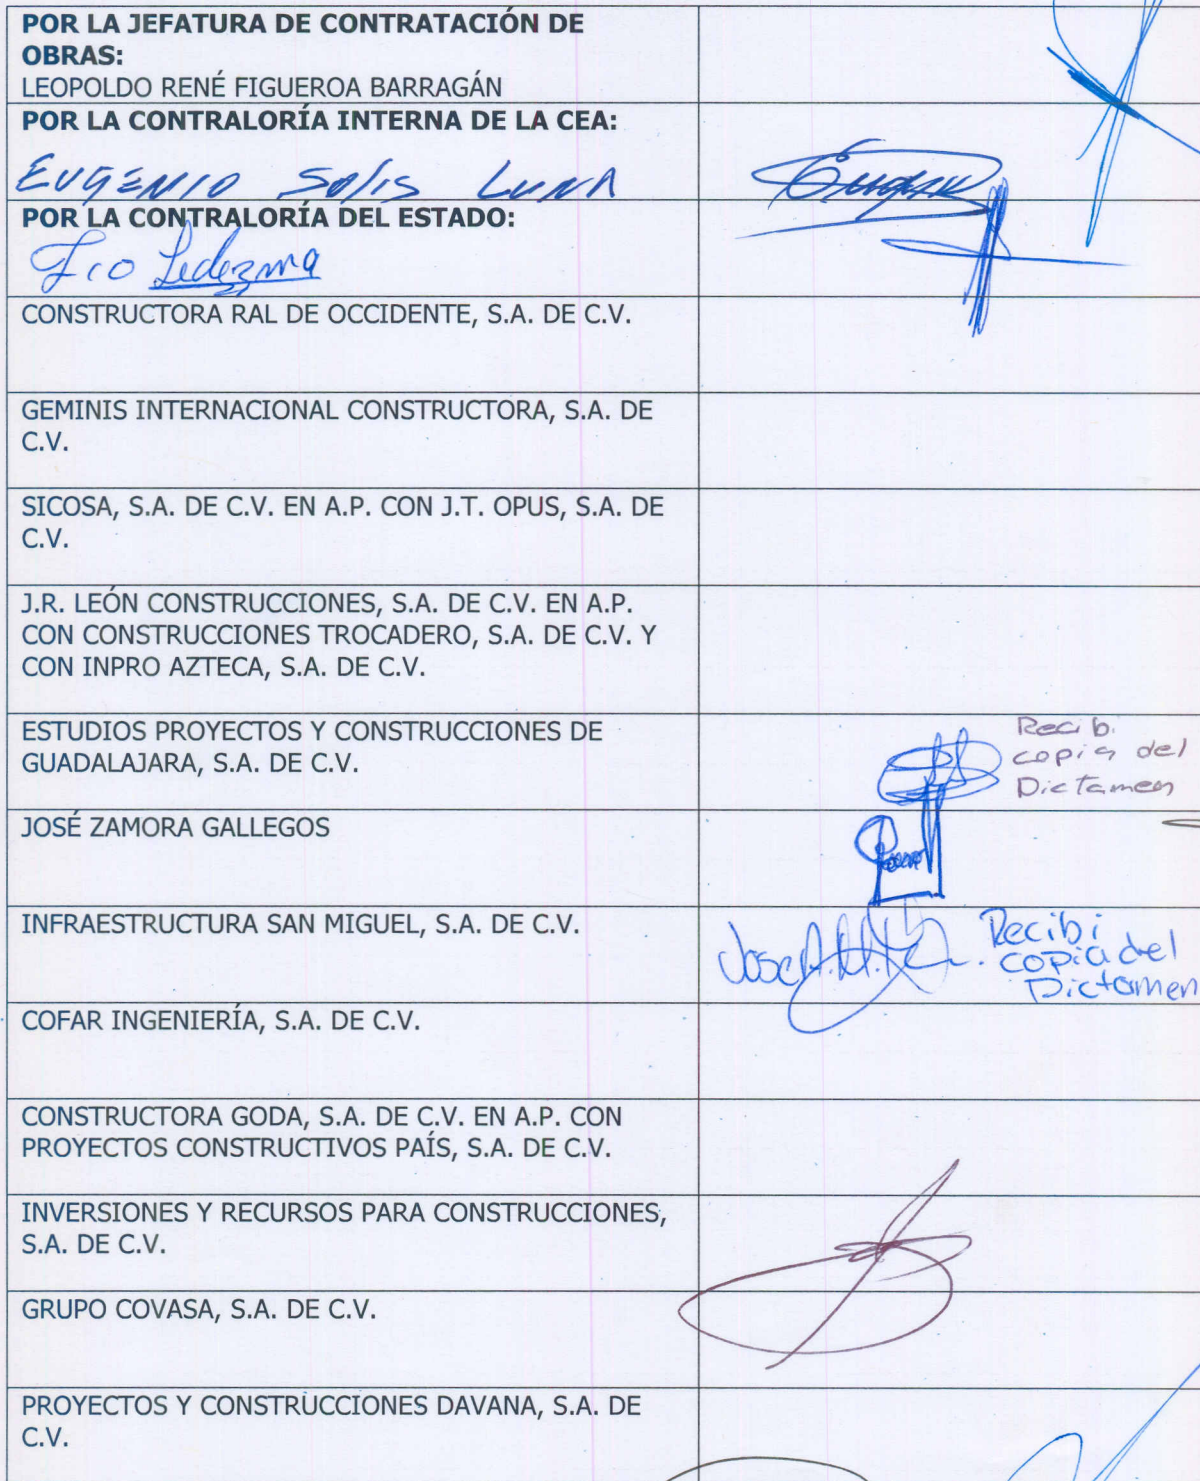 POR LA JEFATURA DE CONTRATACIÓN DE
OBRAS:
LEOPOLDO RENÉ FIGUEROA BARRAGÁN
POR LA CONTRALORÍA INTERNA DE LA CEA:
EUGENIO Solis LUNA
POR LA CONTRALORÍA DEL ESTADO:
Fco Ledezma
CONSTRUCTORA RAL DE OCCIDENTE, S.A. DE C.V.
GEMINIS INTERNACIONAL CONSTRUCTORA, S.A. DE
C.V.
SICOSA, S.A. DE C.V. EN A.P. CON J.T. OPUS, S.A. DE
C.V.
J.R. LEÓN CONSTRUCCIONES, S.A. DE C.V. EN A.P.
CON CONSTRUCCIONES TROCADERO, S.A. DE C.V. Y
CON INPRO AZTECA, S.A. DE C.V.
ESTUDIOS PROYECTOS Y CONSTRUCCIONES DE
GUADALAJARA, S.A. DE C.V.
Recibi
copia del
Dictamen
JOSÉ ZAMORA GALLEGOS
INFRAESTRUCTURA SAN MIGUEL, S.A. DE C.V.
Recibi
copia del
Dictamen
COFAR INGENIERÍA, S.A. DE C.V.
CONSTRUCTORA GODA, S.A. DE C.V. EN A.P. CON
PROYECTOS CONSTRUCTIVOS PAÍS, S.A. DE C.V.
INVERSIONES Y RECURSOS PARA CONSTRUCCIONES,
S.A. DE C.V.
GRUPO COVASA, S.A. DE C.V.
PROYECTOS Y CONSTRUCCIONES DAVANA, S.A. DE
C.V.